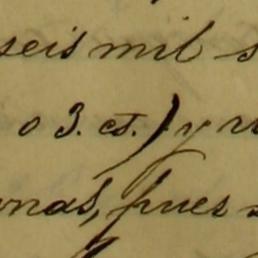 seis mil s
o 3. ct.) y
nas, pues